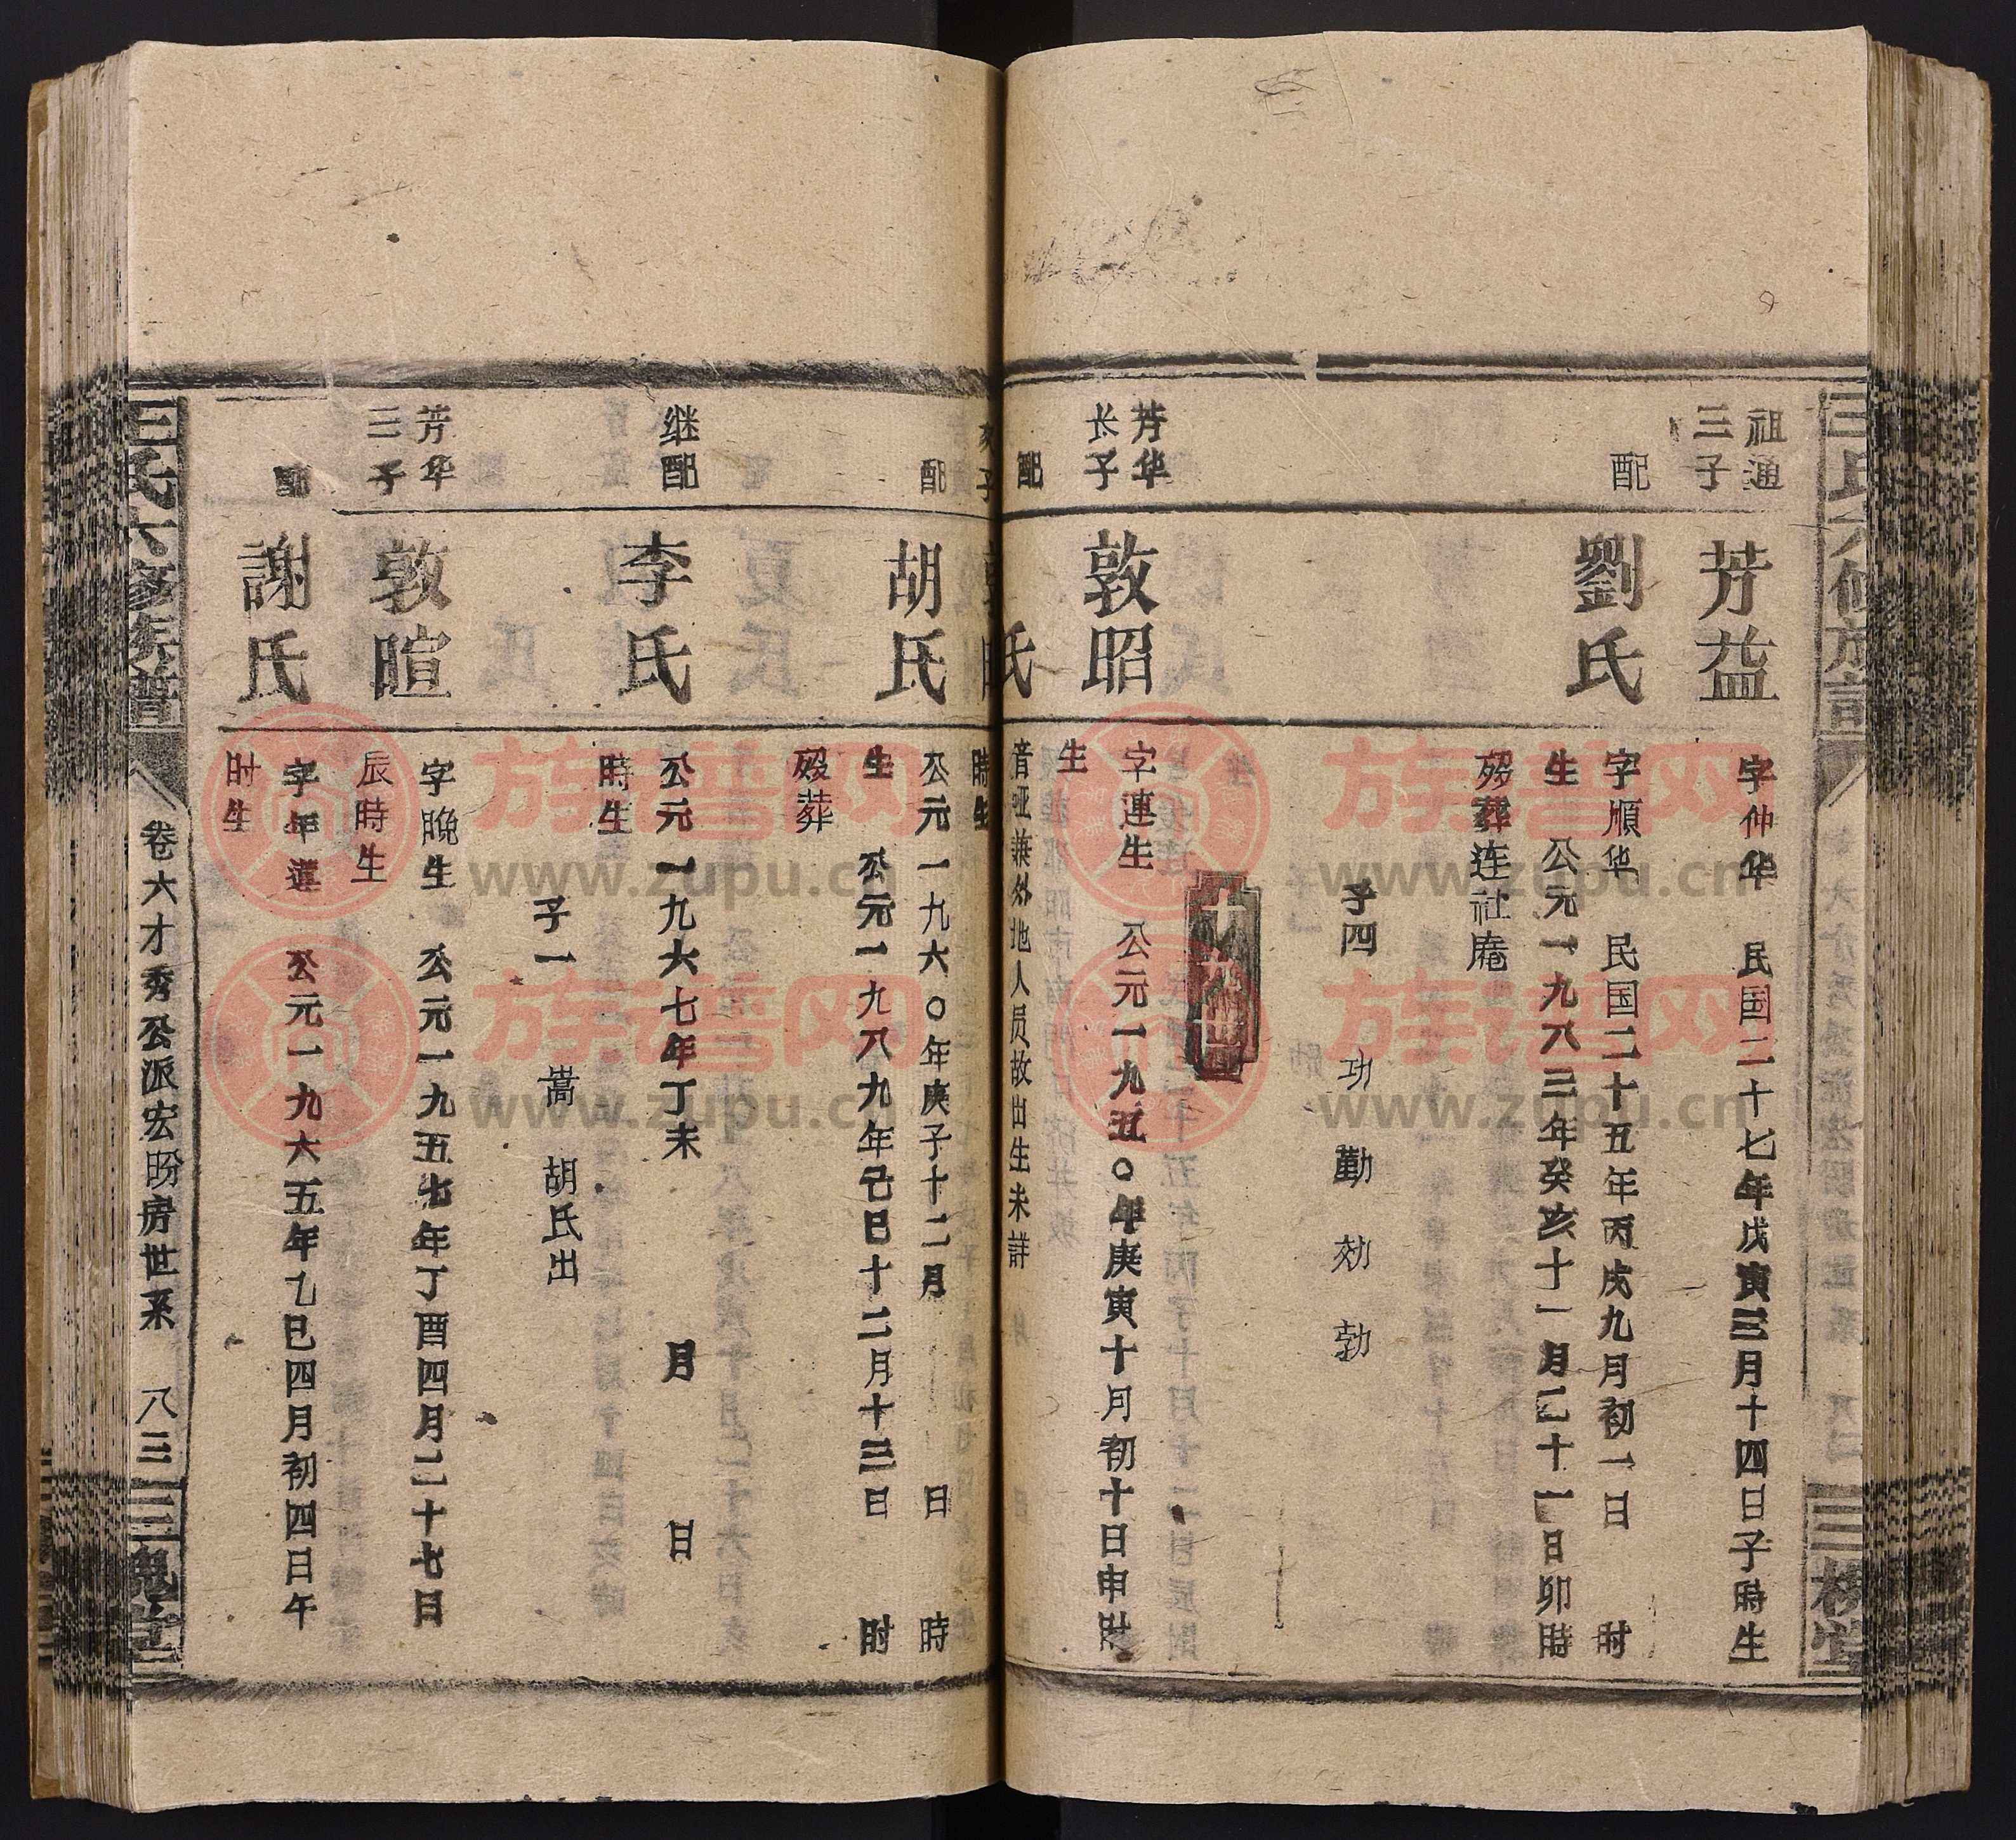 祖通
三子
芳益
字仲华 民国二十七年戊寅三月十四日子時生
配
劉氏
字順华 民国二十五年丙戌九月初一日 时
生 公元一九八三年癸亥十一月二十一日卯時
殁葬连社庵
子四 功 勤 効 勃
十九世
芳华
长子
敦昭
字連生 公元一九五〇年庚寅十月初十日申时
生
配
氏
音哑兼外地人員故出生未詳
時生
配
胡氏
公元一九六〇年庚子十二月 日 時
生 公元一九八九年己巳十二月十三日 时
殁葬
继配
李氏
公元一九六七年丁未 月 日
時生
子一 嵩 胡氏出
芳华
三子
敦暄
字晚生 公元一九五七年丁酉四月二十七日
辰時生
配
謝氏
字年蓮 公元一九六五年乙巳四月初四日午
时生
王氏六修族譜
卷六才秀公派宏盼房世系 八三
三槐堂
族谱网
www.zupu.cn
族谱网
www.zupu.cn
族谱网
www.zupu.cn
族谱网
www.zupu.cn